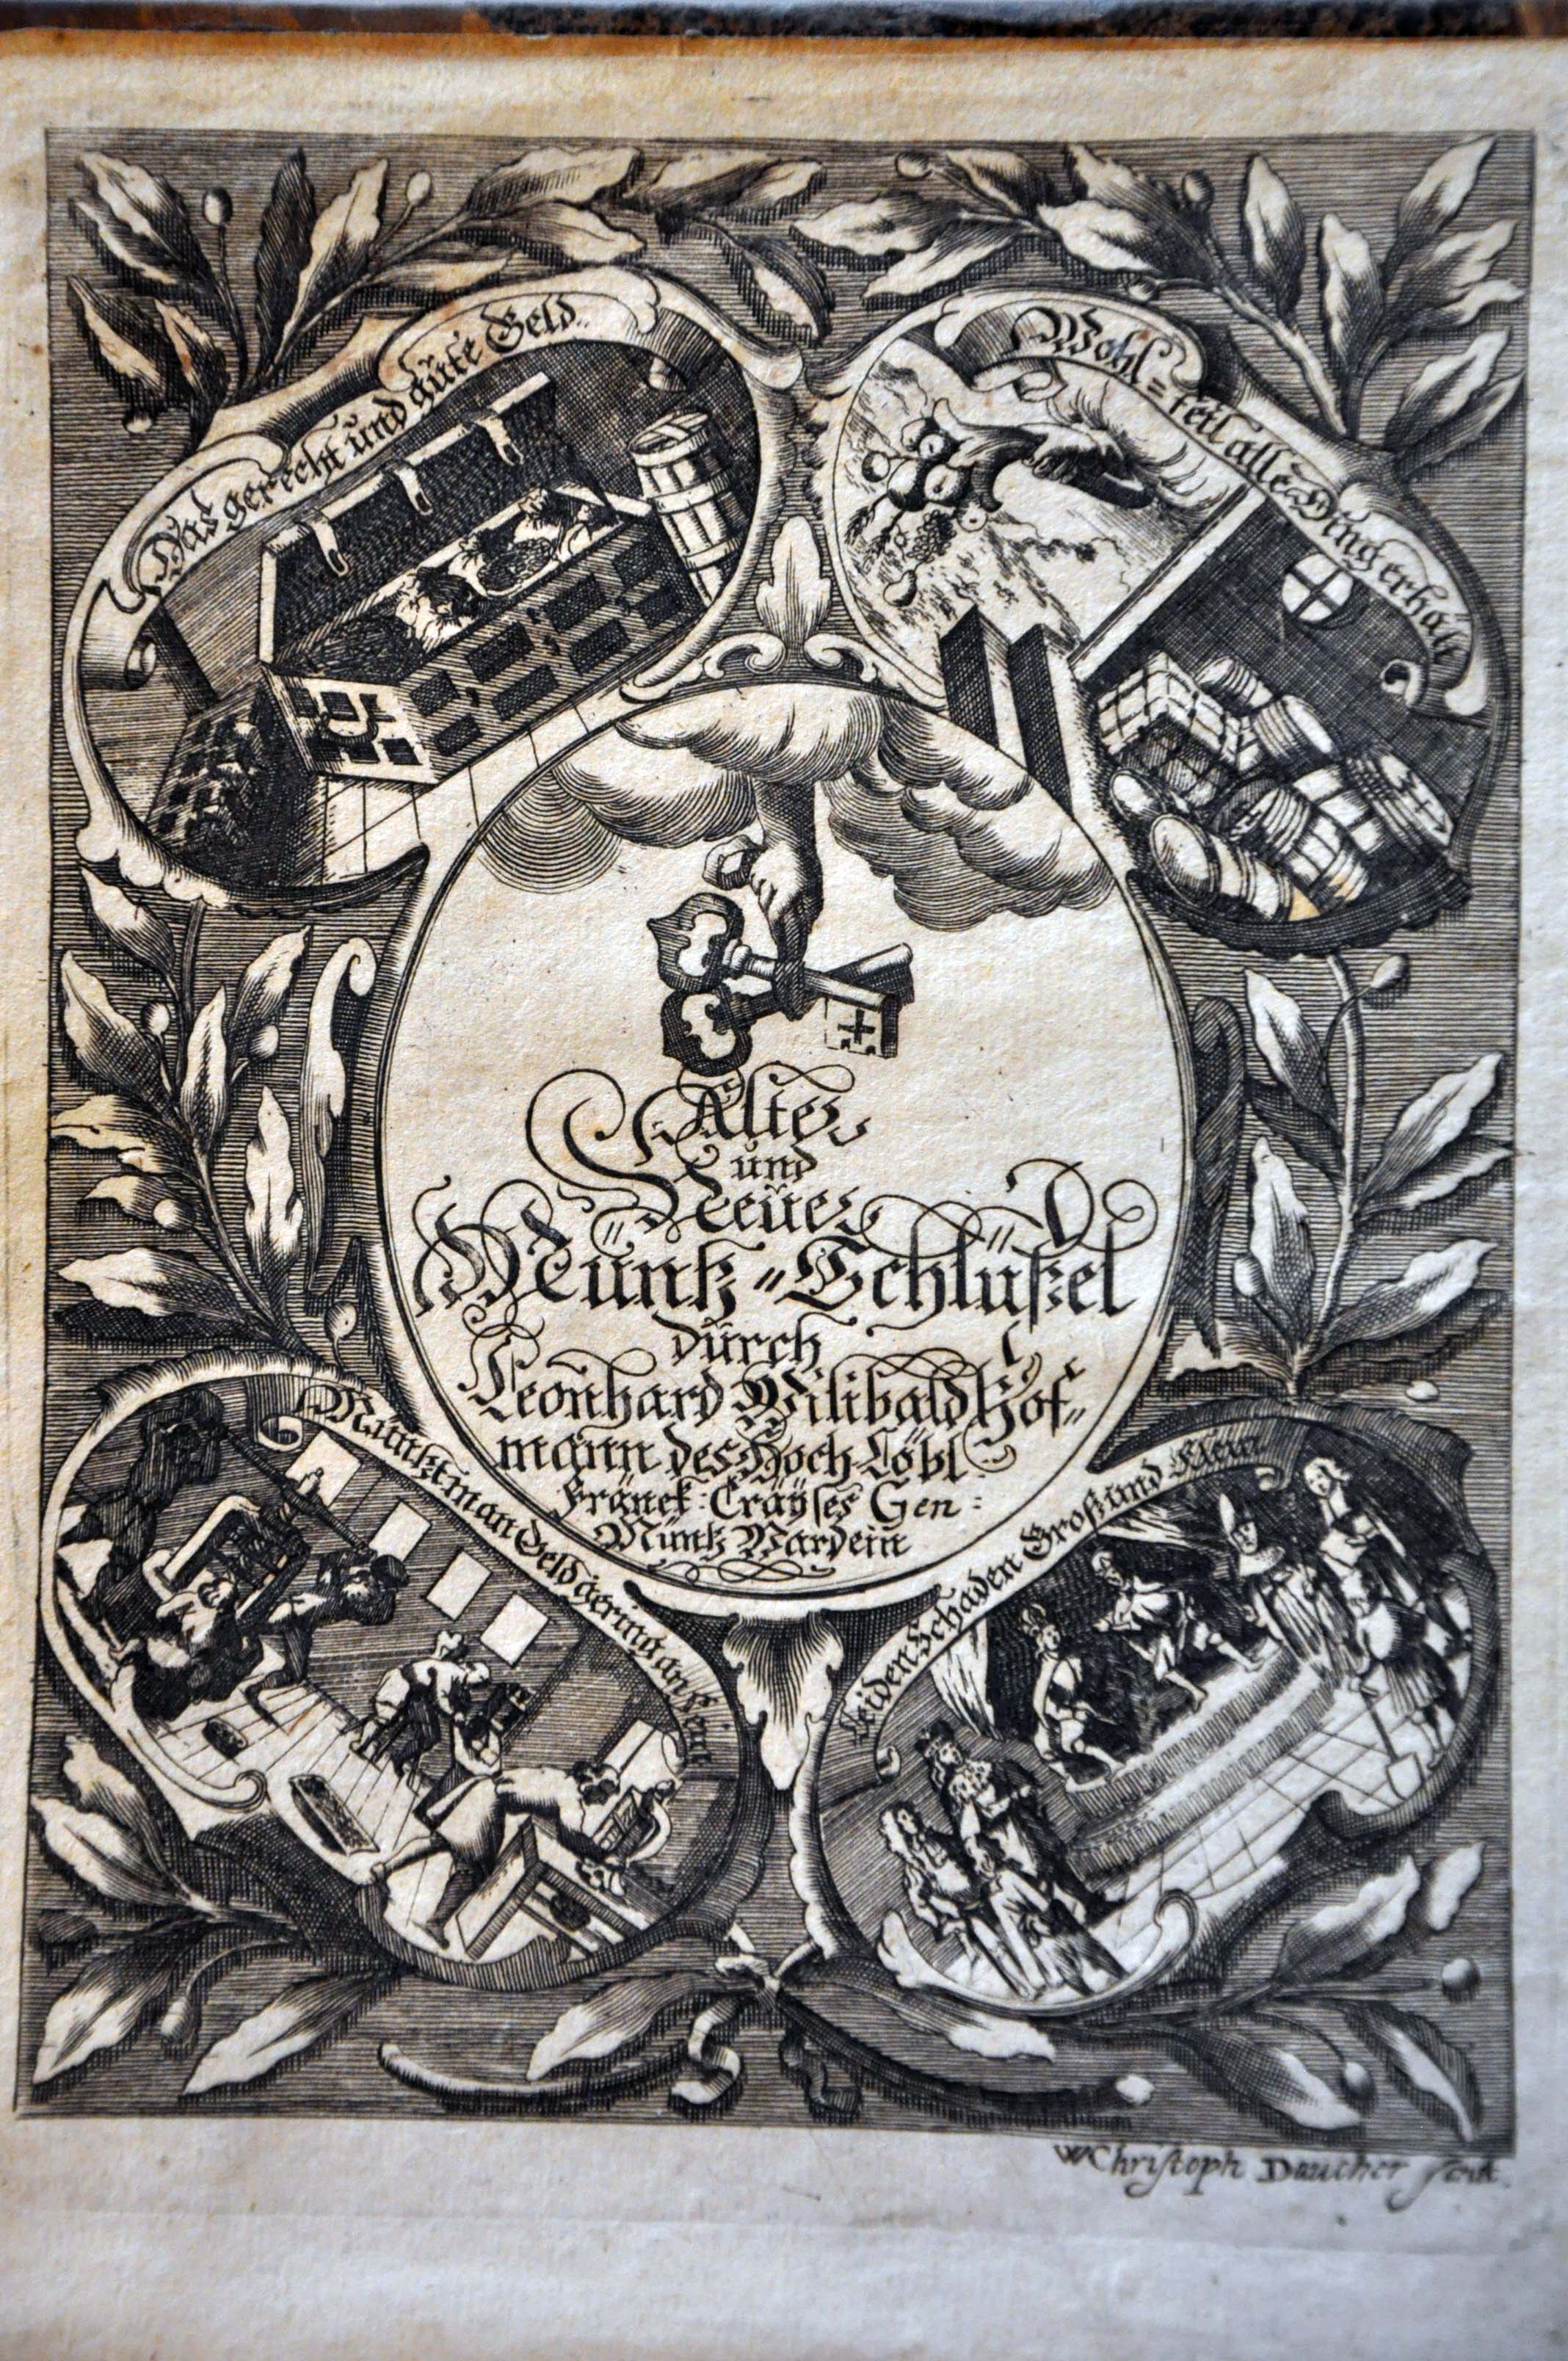 Das gerecht und gute Geld.
Wohl=feil alle Ding erhält
Alter
und
Neuer
Müntz=Schlüßel
durch
Leonhard Wilibald Hof=
mann des Hoch Löbl
Fränck: Cräyses Gen:
Müntz Wardein
Müntzt man Geld gering an fein
Leiden Schaden Groß und Klein
W Christoph Daucher scul.